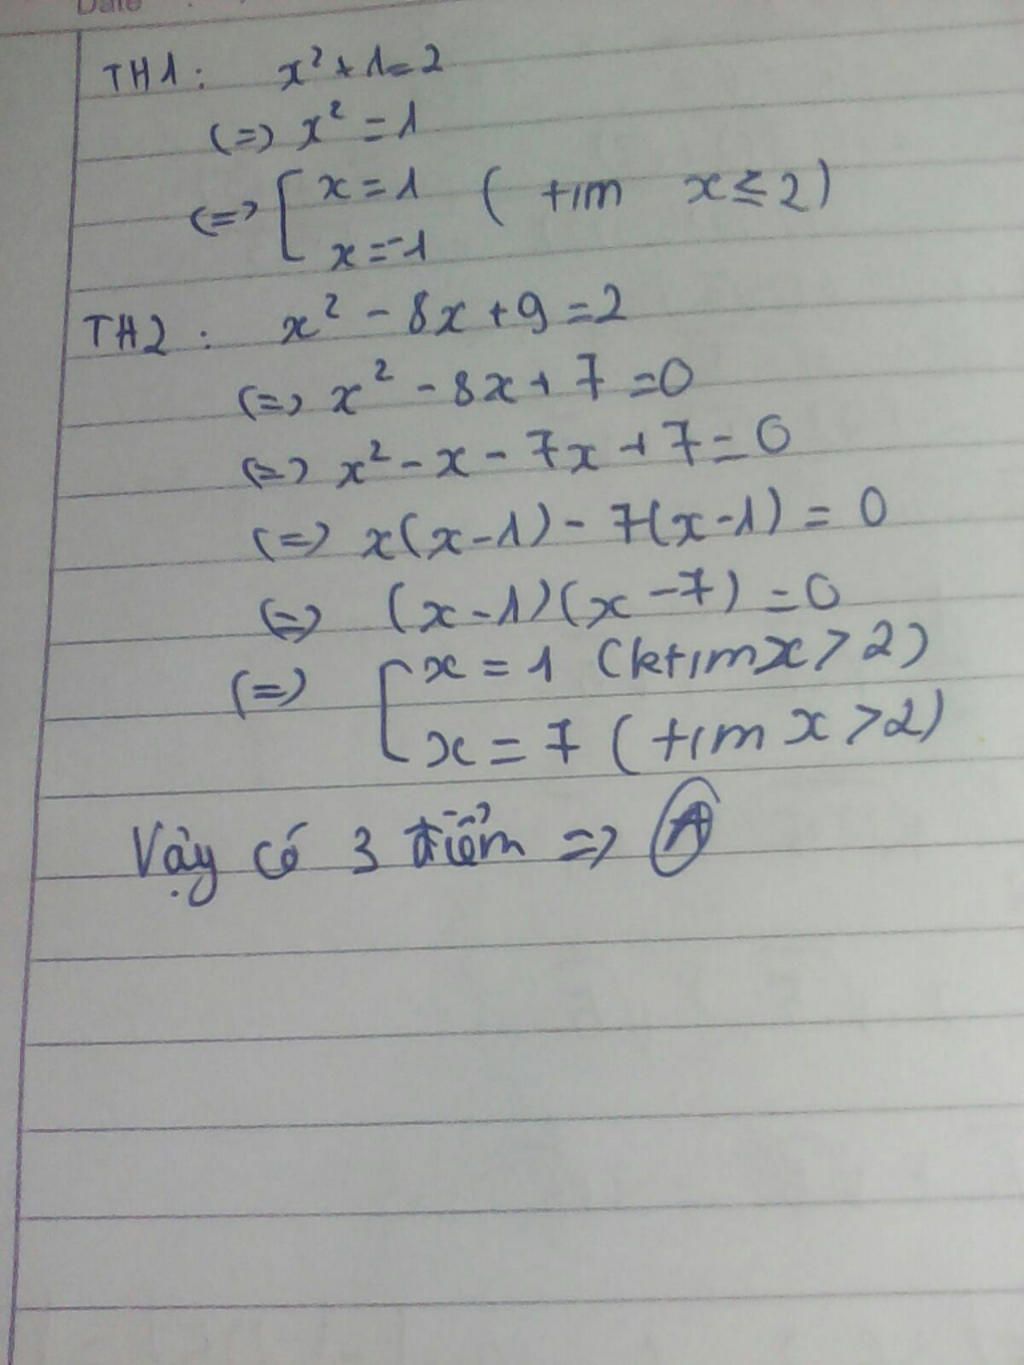 Date
TH1: x² + 1 = 2
(=) x² = 1
(=) [ x = 1 ( t/m x ≤ 2)
x = -1
TH2: x² - 8x + 9 = 2
(=) x² - 8x + 7 = 0
(=) x² - x - 7x + 7 = 0
(=) x(x-1) - 7(x-1) = 0
(=) (x-1)(x-7) = 0
(=) [ x = 1 (k t/m x > 2)
x = 7 ( t/m x > 2)
Vậy có 3 điểm => A